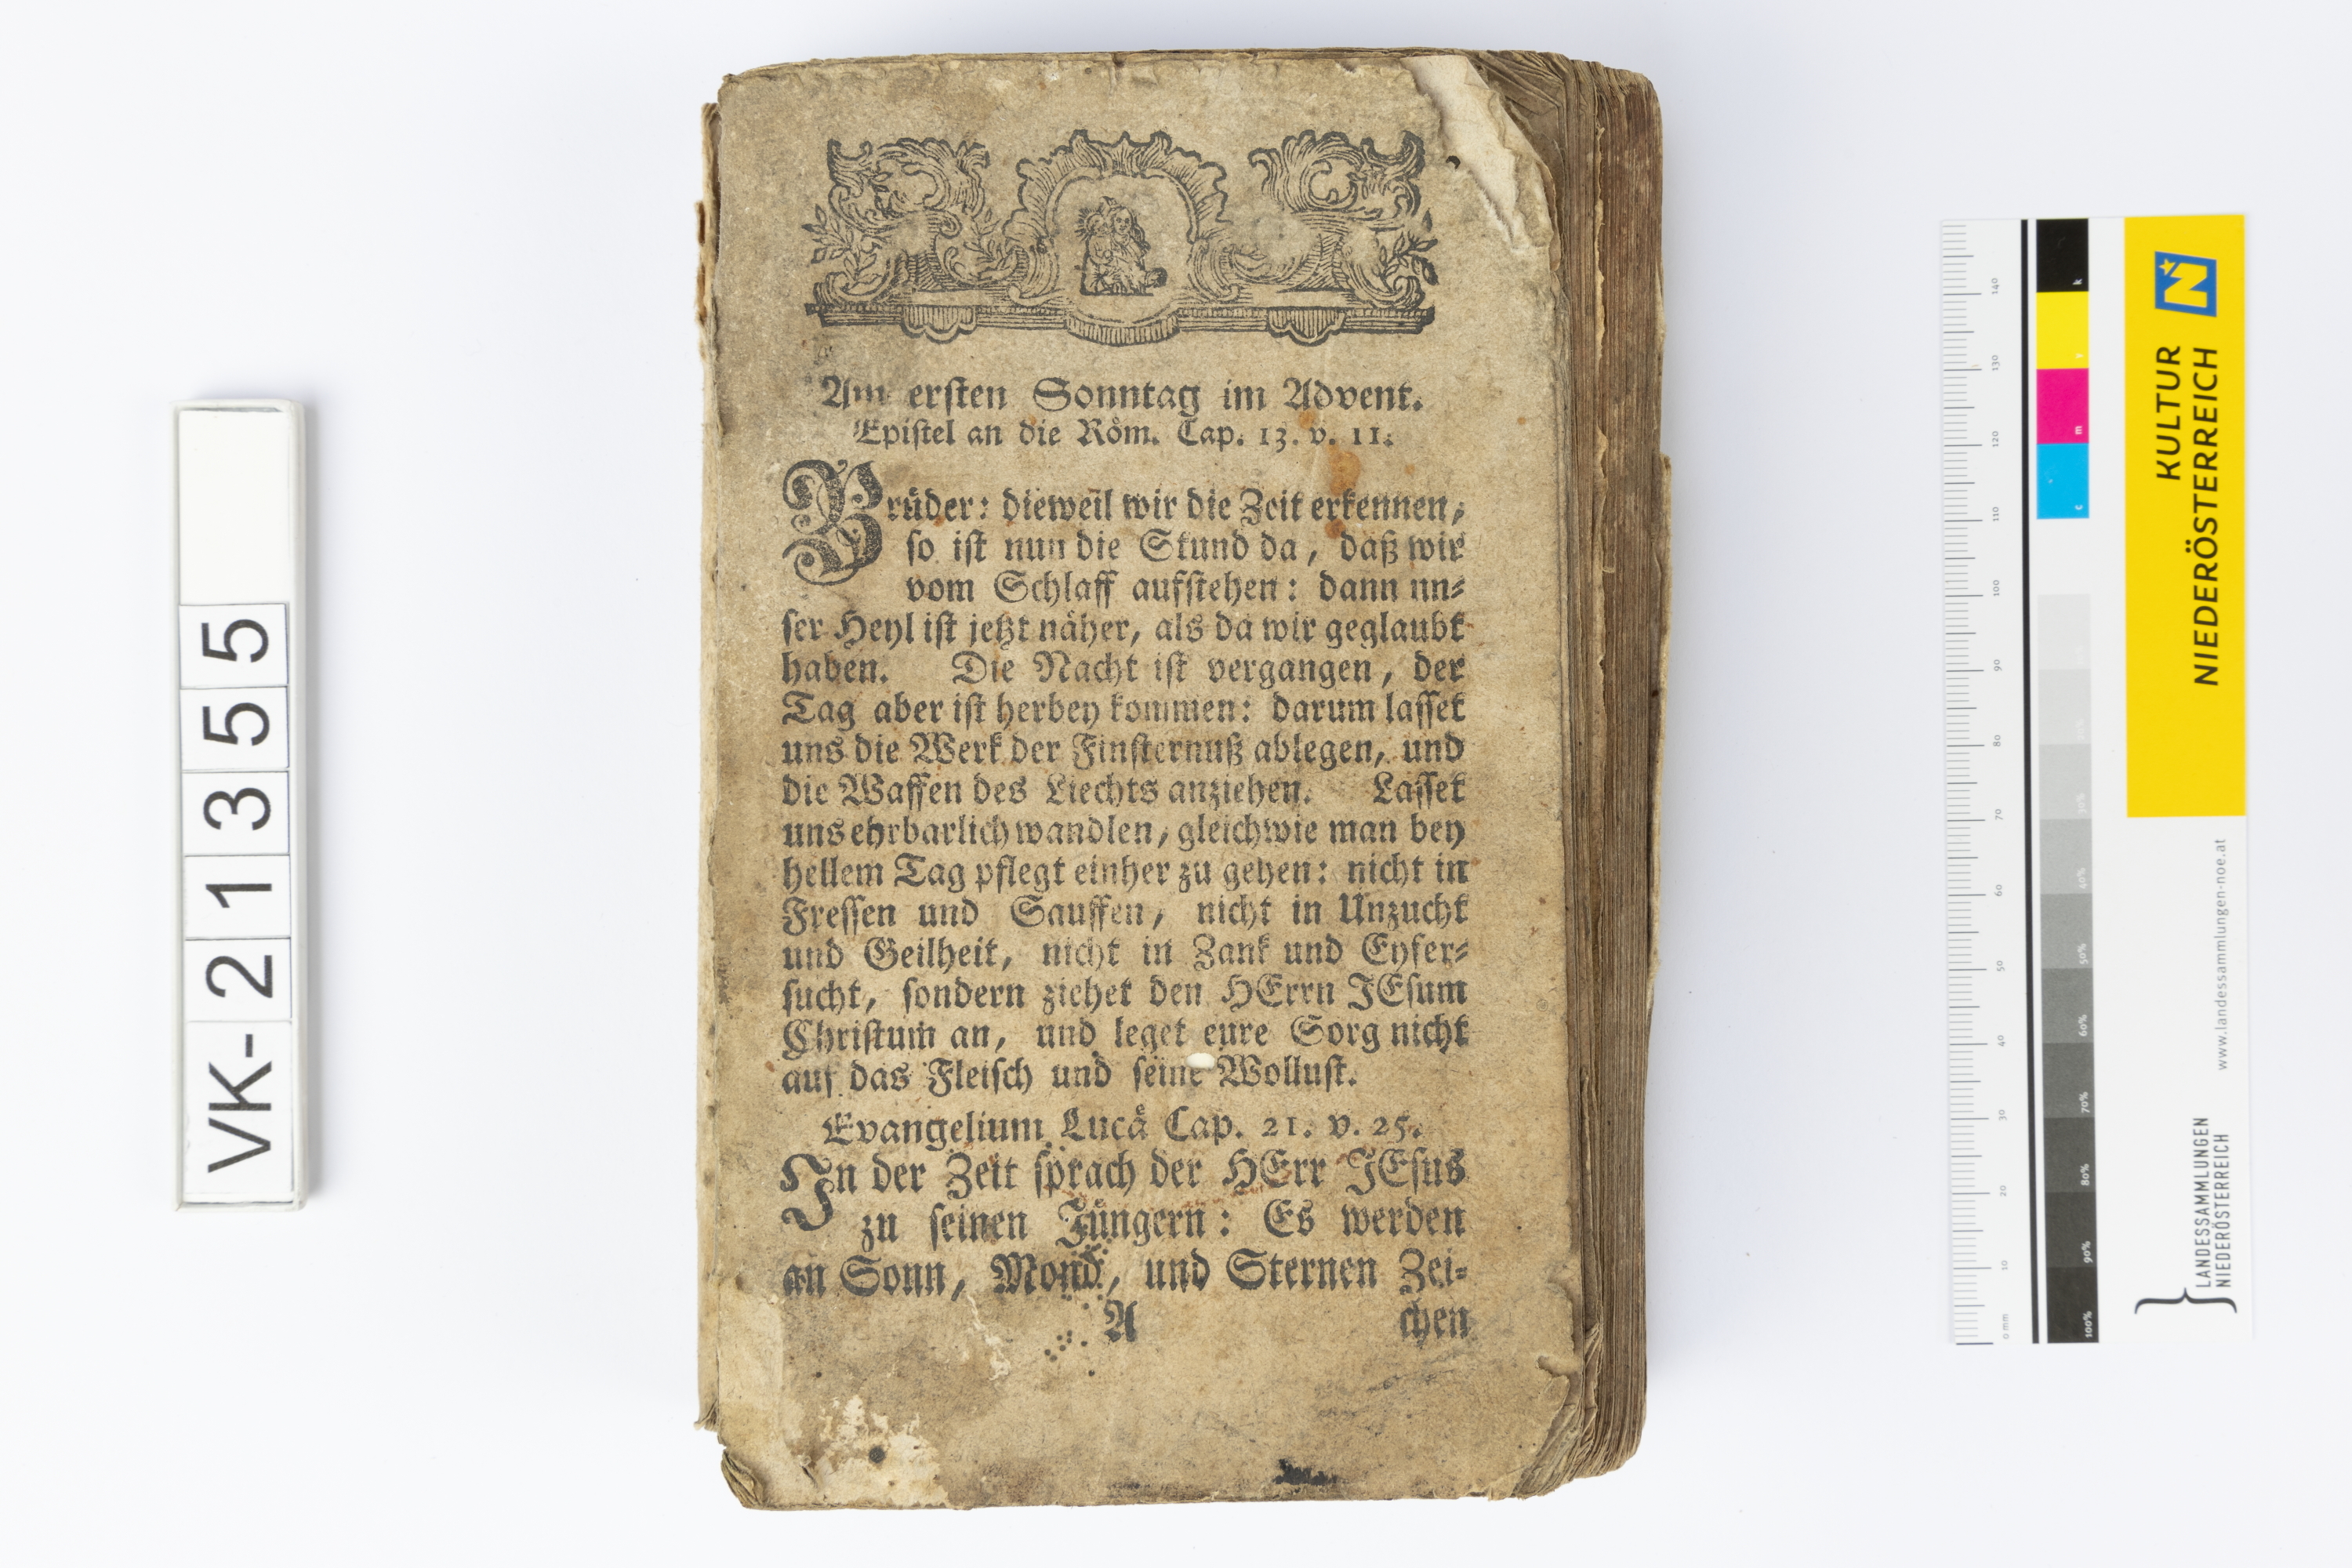 VK-21355
Am ersten Sonntag im Advent.
Epistel an die Röm. Cap. 13. v. 11.
Brüder: dieweil wir die Zeit erkennen,
so ist nun die Stund da, daß wir
vom Schlaff aufstehen: dann un-
ser Heyl ist jetzt näher, als da wir geglaubt
haben. Die Nacht ist vergangen, der
Tag aber ist herbey kommen: darum lasset
uns die Werk der Finsternuß ablegen, und
die Waffen des Liechts anziehen. Lasset
uns ehrbarlich wandlen, gleichwie man bey
hellem Tag pflegt einher zu gehen: nicht in
Fressen und Sauffen, nicht in Unzucht
und Geilheit, nicht in Zank und Eyfer-
sucht, sondern ziehet den HErrn JEsum
Christum an, und leget eure Sorg nicht
auf das Fleisch und seine Wollust.
Evangelium Lucä Cap. 21. v. 25.
In der Zeit sprach der HErr JEsus
zu seinen Jüngern: Es werden
an Sonn, Mond, und Sternen Zei-
A chen
KULTUR
NIEDERÖSTERREICH
N
www.landessammlungen-noe.at
LANDESSAMMLUNGEN
NIEDERÖSTERREICH
0 mm 10 20 30 40 50 60 70 80 90 100 110 120 130 140
100% 90% 80% 70% 60% 50% 40% 30% 20% 10% c m y k